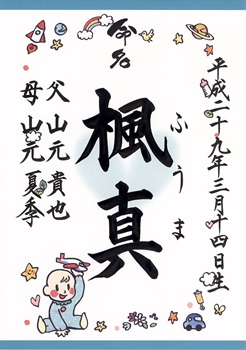 命名
平成二十九年三月十四日生
楓真
ふうま
父 山元 貴也
母 山元 夏季